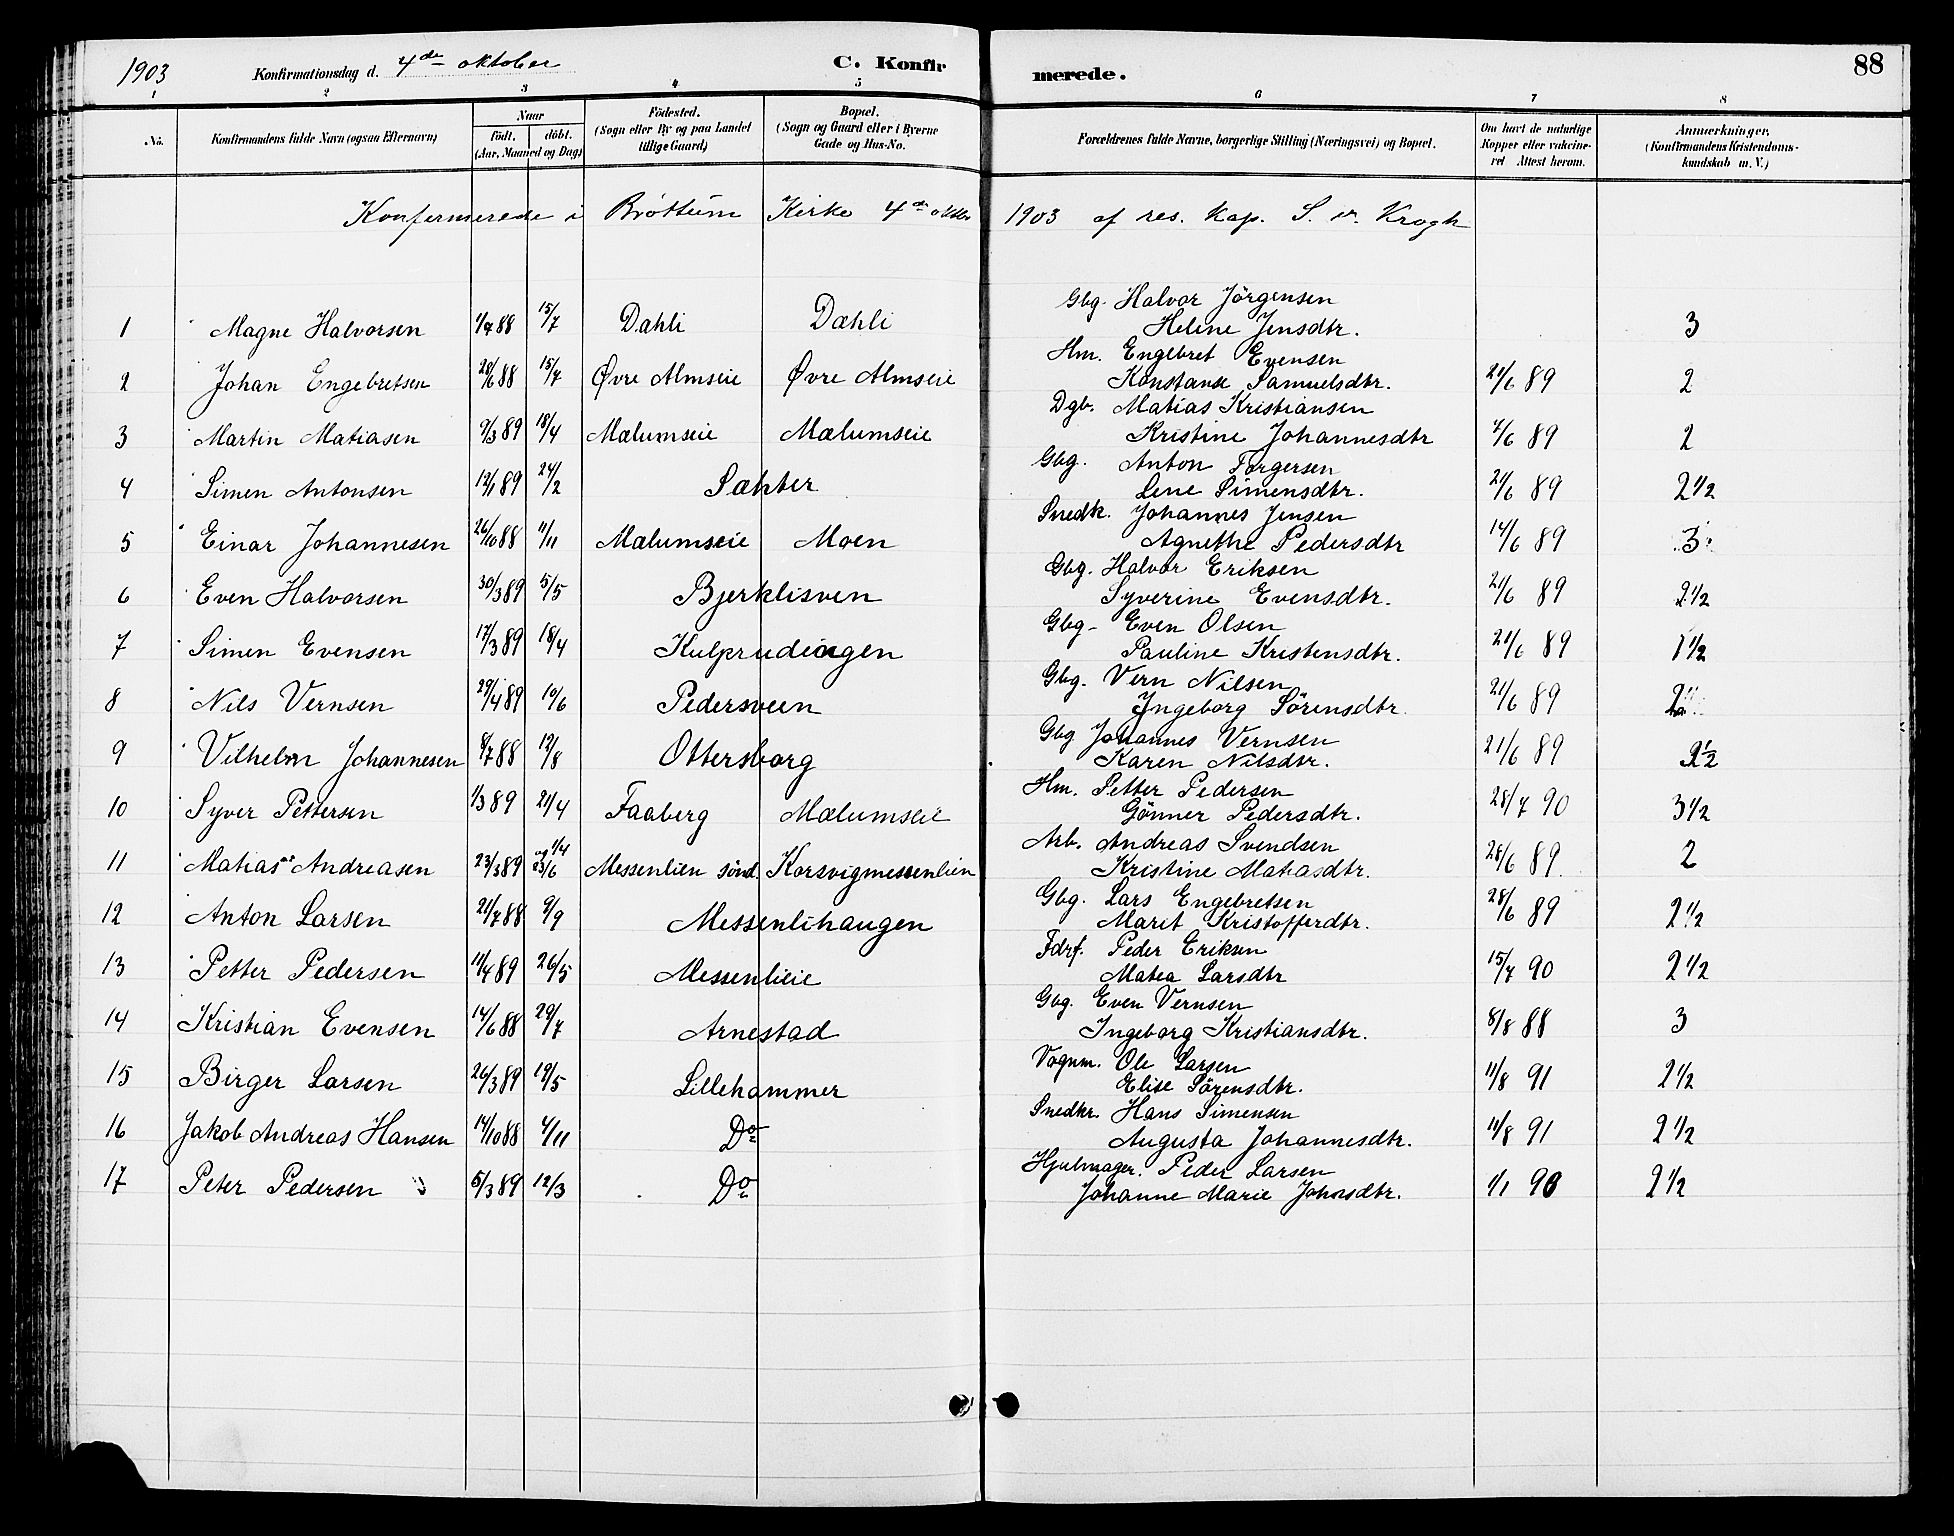 1903 Konfirmationsdag d. 4de oktober C. Konfir merede. 88
1 2 3 4 5 6 7 8
No. Konfirmandens fulde Navn (ogsaa Efternavn) Naar födt. döbt. (Aar, Maaned og Dag) Födested. (Sogn eller By og paa Landet tillige Gaard) Bopæl. (Sogn og Gaard eller i Byerne Gade og Hus-No. Forældrenes fulde Navne, borgerlige Stilling (Næringsvei) og Bopæl. Om havt de naturlige Kopper eller vakcineret. Attest herom. Anmærkninger, (Konfirmandens Kristendomskundskab m. V.)
Konfermerede i Bröttum Kirke 4de oktbr 1903 af res. kap. S. v. Krogh
Gbg. Halvor Jörgensen
1 Magne Halvorsen 1/7 88 15/7 Dæhli Dæhli Heline Jensdtr. 3
Hm. Engebret Evensen
2 Johan Engebretsen 28/6 88 15/7 Øvre Almseie Øvre Almseie Konstanse Samuelsdtr. 21/6 89 2
Dgb. Matias Kristiansen
3 Martin Matiasen 9/3 89 18/4 Mælumseie Mælumseie Kristine Johannesdtr 7/6 89 2
Gbg. Anton Torgersen
4 Simen Antonsen 12/1 89 24/2 Sæhter Lene Simensdtr. 21/6 89 2 1/2
Snedk. Johannes Jensen
5 Einar Johannesen 26/10 88 11/11 Mælumseie Moen Agnethe Pedersdtr 14/6 89 3
Gbg. Halvor Eriksen
6 Even Halvorsen 30/3 89 5/5 Bjerklisven Syverine Evensdtr. 21/6 89 2 1/2
Gbg. Even Olsen
7 Simen Evensen 17/3 89 18/4 Kulprudengen Pauline Kristensdtr. 21/6 89 1 1/2
Gbg. Vern Nilsen
8 Nils Vernsen 29/4 89 10/6 Pedersveen Ingeborg Sörensdtr. 21/6 89
Gbg Johannes Vernsen
9 Vilhelm Johannesen 8/7 88 12/8 Ottersborg Karen Nilsdtr. 21/6 89 2 1/2
Hm. Petter Pedersen
10 Syver Pettersen 1/3 89 21/4 Faaberg Mælumseie Gönner Pedersdtr. 28/7 90 3 1/2
Arb. Andreas Svendsen
11 Matias Andreasen 23/3 89 1/4 og 23/6 Messenlien sönd. Korsvigmessenlien Kristine Matiasdtr. 28/6 89 2
Gbg. Lars Engebretsen
12 Anton Larsen 21/7 88 9/9 Messenlihaugen Marit Kristofferdtr. 28/6 89 2 1/2
Fdrf. Peder Eriksen
13 Petter Pedersen 11/4 89 26/5 Messenlieie Matea Larsdtr 15/7 90 2 1/2
Gbg. Even Vernsen
14 Kristian Evensen 14/6 88 29/7 Arnestad Ingeborg Kristiansdtr. 8/8 88 3
Vognm. Ole Larsen
15 Birger Larsen 26/3 89 19/5 Lillehammer Elise Sörensdtr. 11/8 91 2 1/2
Snedkr. Hans Simensen
16 Jakob Andreas Hansen 14/10 88 4/11 Do Augusta Johannesdtr. 11/8 91 2 1/2
Hjulmager. Peder Larsen
17 Peter Pedersen 5/3 89 12/3 Do Johanne Marie Johnsdtr. 1/1 90 2 1/2